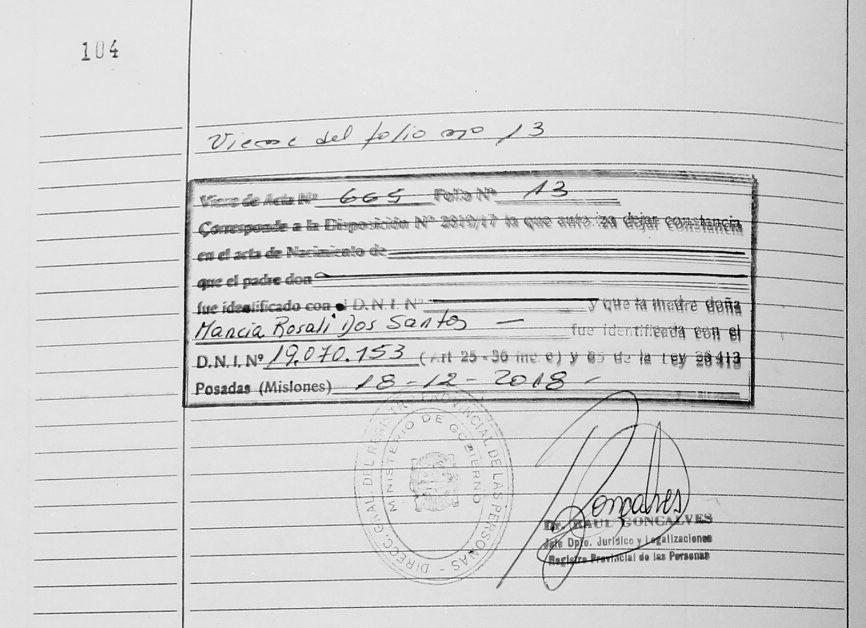 104
Viene del folio no 13
Viene de Acta Nº 665 Folio Nº 13
Corresponde a la Disposición Nº 2819/17 la que autoriza dejar constancia
en el acta de Nacimiento de
que el padre don
fue identificado con el D.N.I. Nº y que la madre doña
Marcia Rosali Dos Santos — fue identificada con el
D.N.I. Nº 19.070.153 (Art 25 - 36 inc c) y 85 de la Ley 26413
Posadas (Misiones) 18-12-2018-
DIRECC. GRAL. DEL REGISTRO PROVINCIAL DE LAS PERSONAS -
MINISTERIO DE GOBIERNO
Gonçalves
Dr. RAUL GONCALVES
Jefe Dpto. Jurídico y Legalizaciones
Registro Provincial de las Personas